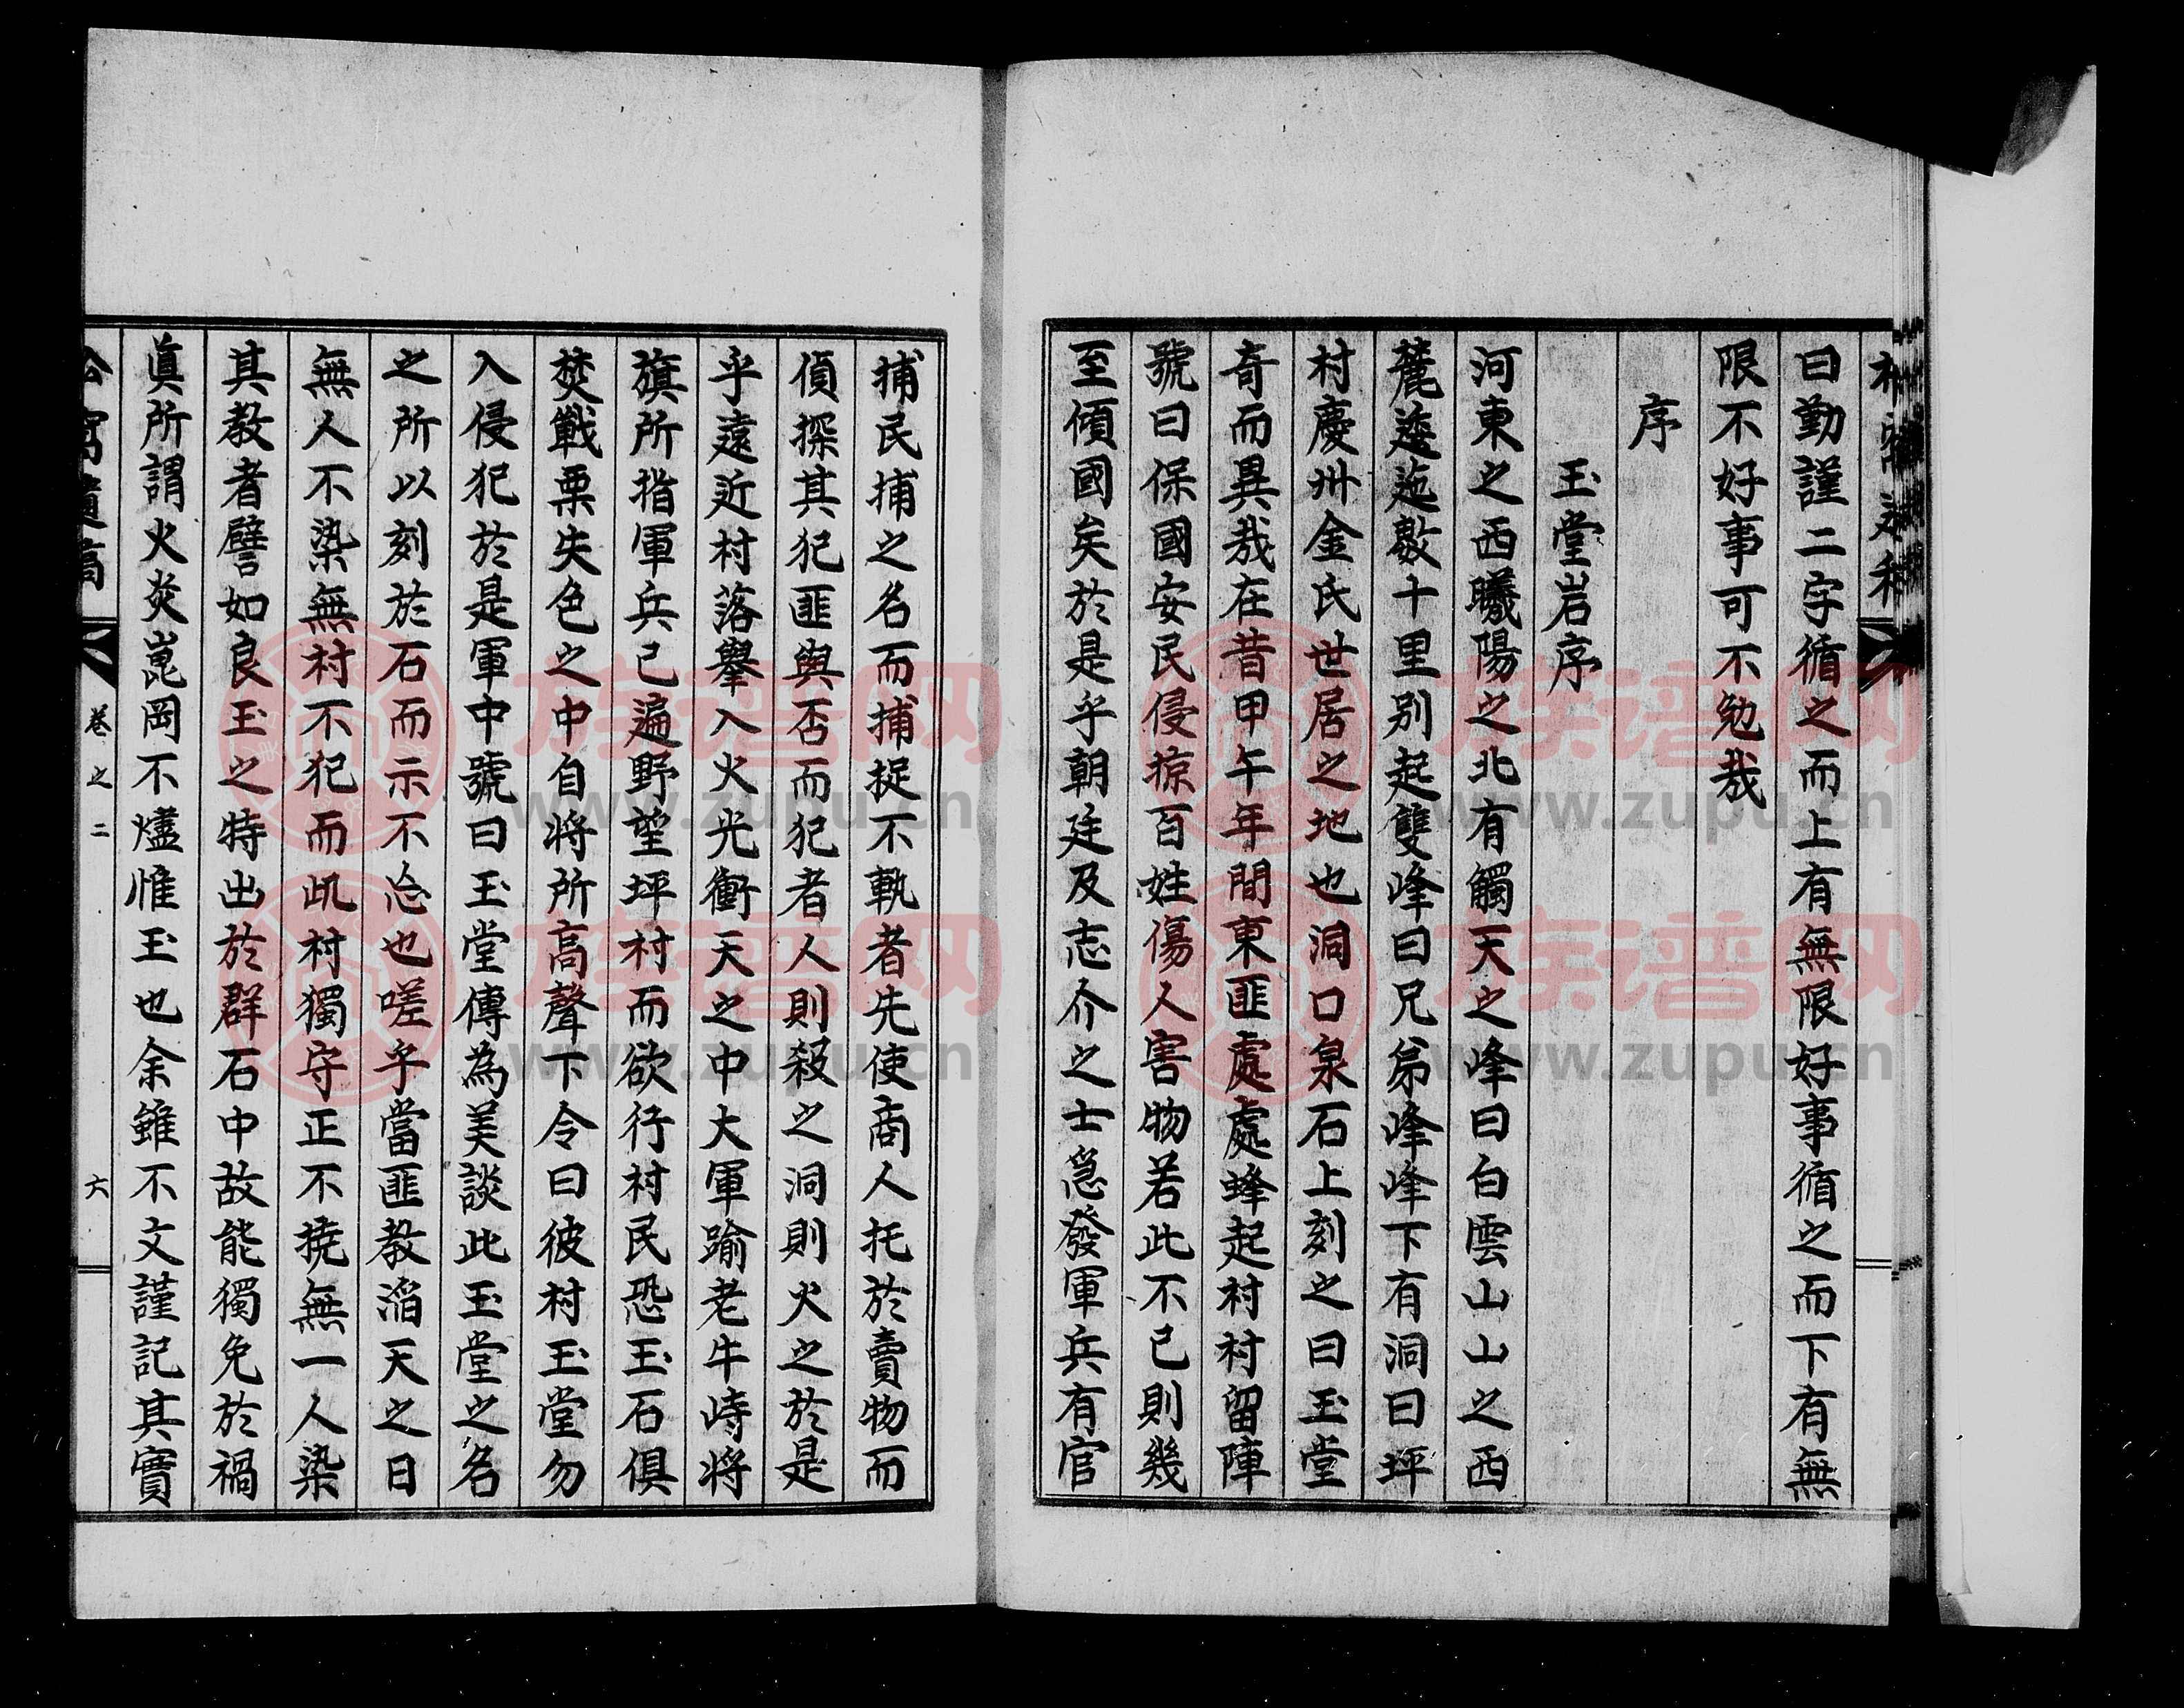 曰勤謹二字循之而上有無限好事循之而下有無
限不好事可不勉哉
序
玉堂岩序
河東之西曦陽之北有觸天之峰曰白雲山山之西
麓逶迤數十里別起雙峰曰兄弟峰峰下有洞曰坪
村慶州金氏世居之地也洞口泉石上刻之曰玉堂
奇而異哉在昔甲午年間東匪處處蜂起村村留陣
號曰保國安民侵掠百姓傷人害物若此不已則幾
至傾國矣於是乎朝廷及志介之士急發軍兵有官
捕民捕之名而捕捉不軌者先使商人托於賣物而
偵探其犯匪與否而犯者人則殺之洞則火之於是
乎遠近村落擧入火光衝天之中大軍踰老牛峙將
旗所指軍兵已遍野望坪村而欲行村民恐玉石俱
焚戰栗失色之中自將所高聲下令曰彼村玉堂勿
入侵犯於是軍中號曰玉堂傳為美談此玉堂之名
之所以刻於石而示不忘也嗟乎當匪教滔天之日
無人不染無村不犯而此村獨守正不撓無一人染
其教者譬如良玉之特出於群石中故能獨免於禍
眞所謂火炎崑岡不燼惟玉也余雖不文謹記其實
卷之二
六
族谱网
www.zupu.cn
族谱网
www.zupu.cn
族谱网
www.zupu.cn
族谱网
www.zupu.cn